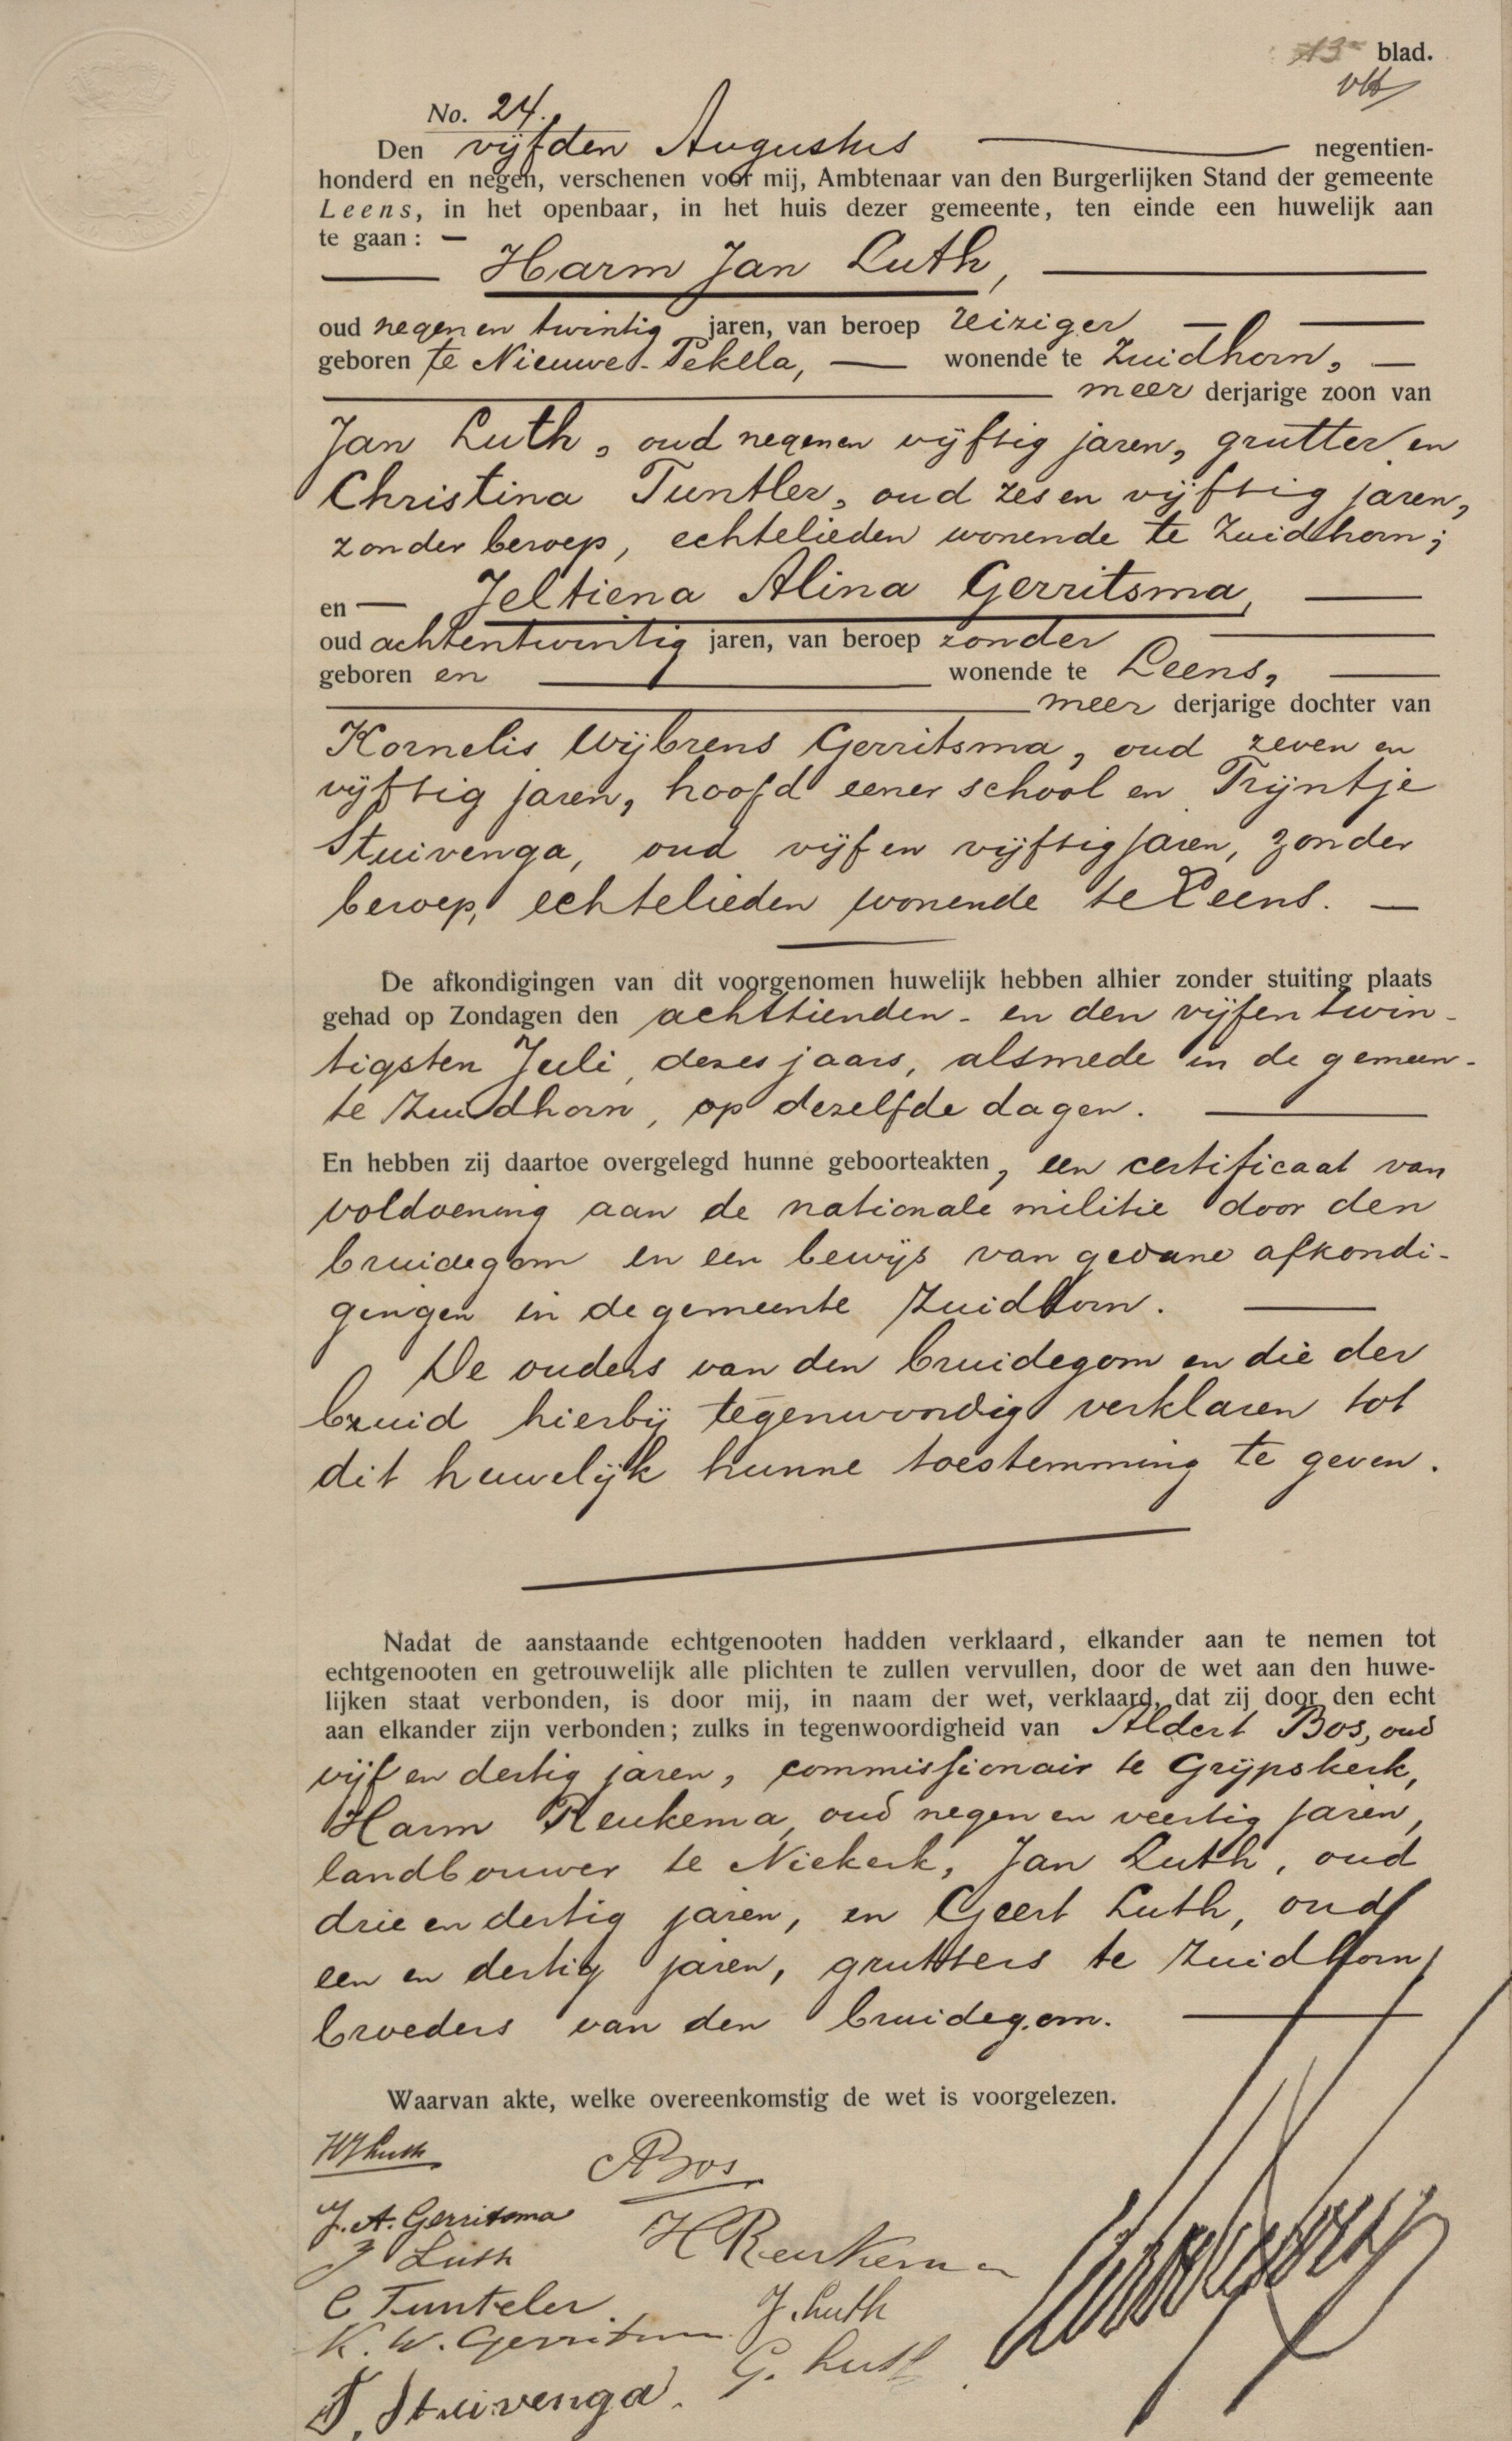 13e blad.
No. 24.
Den vijfden Augustus negentien-
honderd en negen, verschenen voor mij, Ambtenaar van den Burgerlijken Stand der gemeente
Leens, in het openbaar, in het huis dezer gemeente, ten einde een huwelijk aan
te gaan: —
Harm Jan Luth,
oud negen en twintig jaren, van beroep reiziger
geboren te Nieuwe-Pekela, — wonende te Zuidhorn, —
meer derjarige zoon van
Jan Luth, oud negen en vijftig jaren, grutter en
Christina Tuntler, oud zes en vijftig jaren,
zonder beroep, echtelieden wonende te Zuidhorn;
en — Jeltiena Alina Gerritsma,
oud achtentwintig jaren, van beroep zonder
geboren en wonende te Leens,
meer derjarige dochter van
Kornelis Wijbrens Gerritsma, oud zeven en
vijftig jaren, hoofd eener school en Trijntje
Stuivenga, oud vijf en vijftig jaren, zonder
beroep, echtelieden wonende te Leens. —
De afkondigingen van dit voorgenomen huwelijk hebben alhier zonder stuiting plaats
gehad op Zondagen den achttienden - en den vijfentwin-
tigsten Juli, dezes jaars, alsmede in de gemeen-
te Zuidhorn, op dezelfde dagen.
En hebben zij daartoe overgelegd hunne geboorteakten, een certificaat van
voldoening aan de nationale militie door den
bruidegom en een bewijs van gedane afkondi-
gingen in de gemeente Zuidhorn.
De ouders van den bruidegom en die der
bruid hierbij tegenwoordig verklaren tot
dit huwelijk hunne toestemming te geven.
Nadat de aanstaande echtgenooten hadden verklaard, elkander aan te nemen tot
echtgenooten en getrouwelijk alle plichten te zullen vervullen, door de wet aan den huwe-
lijken staat verbonden, is door mij, in naam der wet, verklaard, dat zij door den echt
aan elkander zijn verbonden; zulks in tegenwoordigheid van Aldert Bos, oud
vijf en dertig jaren, commissionair te Grijpskerk,
Harm Reukema, oud negen en veertig jaren,
landbouwer te Niekerk, Jan Luth, oud
drie en dertig jaren, en Geert Luth, oud
een en dertig jaren, grutters te Zuidhorn,
broeders van den bruidegom.
Waarvan akte, welke overeenkomstig de wet is voorgelezen.
HJ Luth
A Bos
J. A. Gerritsma
H Reukema
J Luth
C Tunteler.
J. Luth
K. W. Gerritsma
G. Luth
T. Stuivenga.